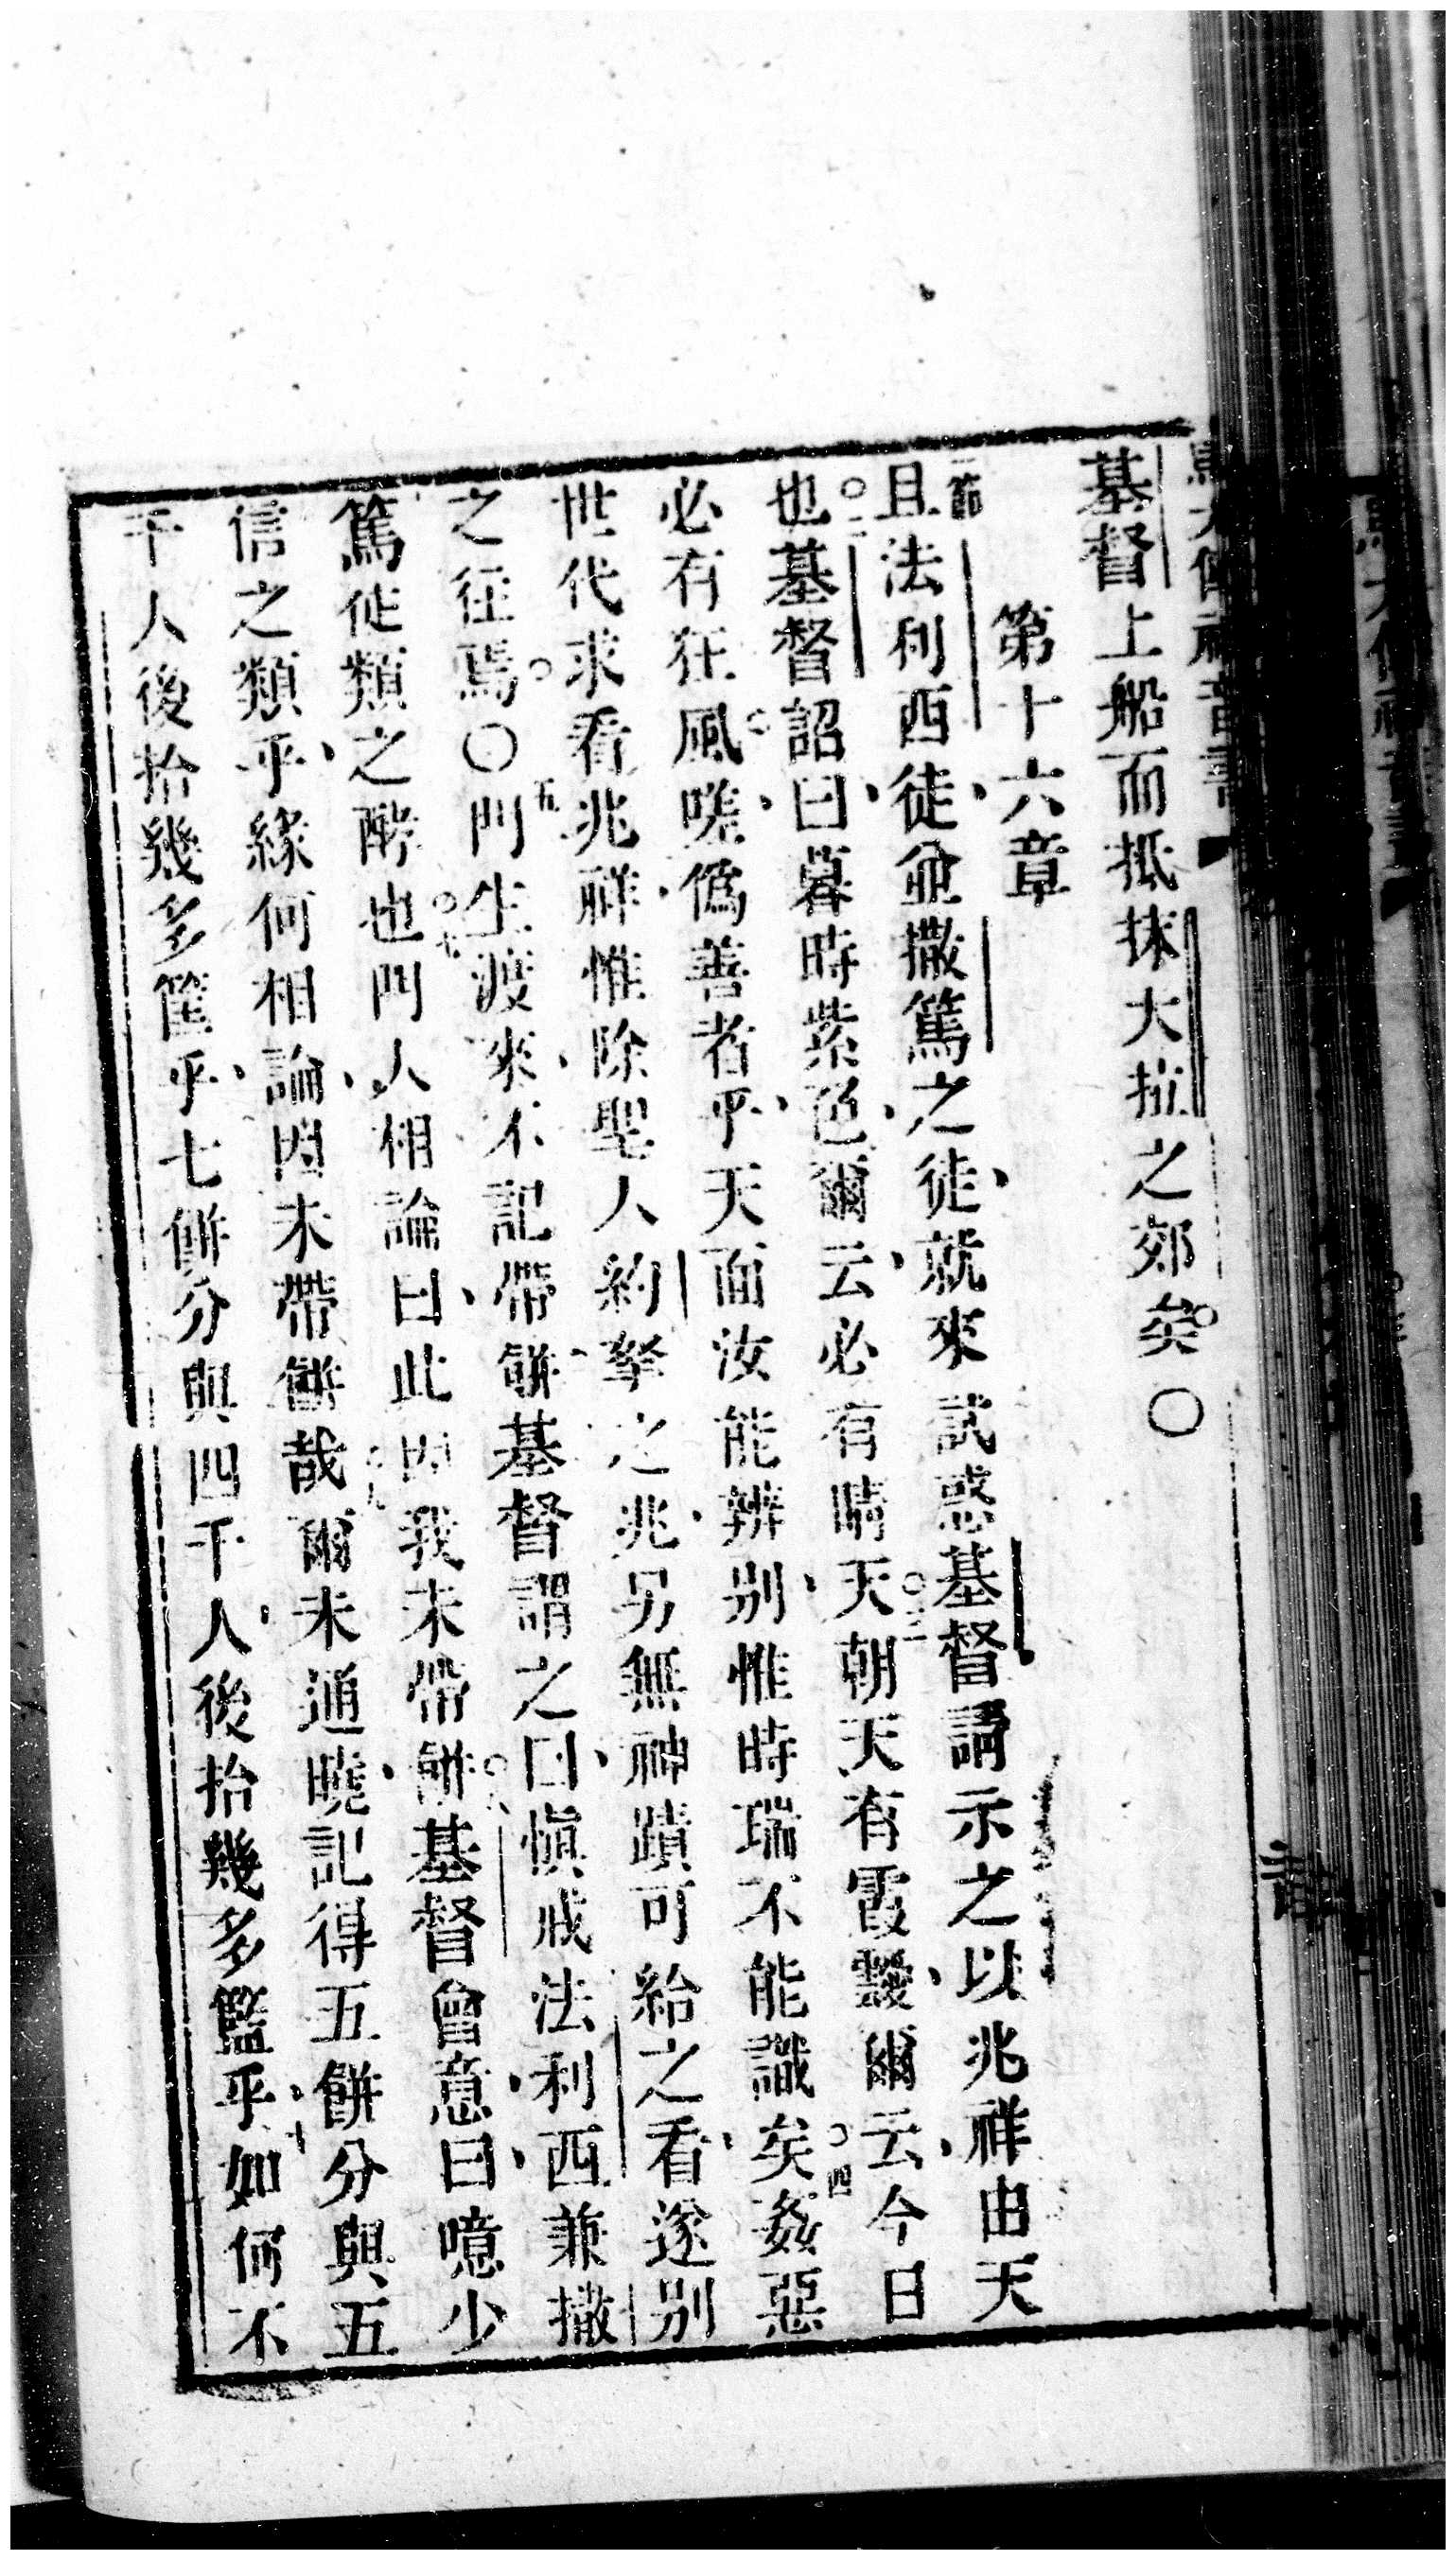 基督上船而抵抹大拉之郊矣。〇
第十六章
一節且法利西徒、並撒篤之徒、就來試惑基督、請示之以兆祥由天
也。二基督詔曰、暮時紫色、爾云、必有晴天。三朝天有霞靉、爾云、今日
必有狂風。嗟、僞善者乎、天面汝能辨别、惟時瑞不能識矣。四姦惡
世代求看兆祥、惟除聖人約拏之兆、另無神蹟可給之看、遂别
之往焉。〇五門生渡來、不記帶餅、基督謂之曰、愼戒法利西兼撒
篤徒類之酵也。七門人相論曰、此因我未帶餅。八基督會意曰、噫少
信之類乎、緣何相論、因未帶餅哉。九爾未通曉、記得五餅分與五
千人後拾幾多筐乎、十七餅分與四千人、後拾幾多籃乎、十如何不